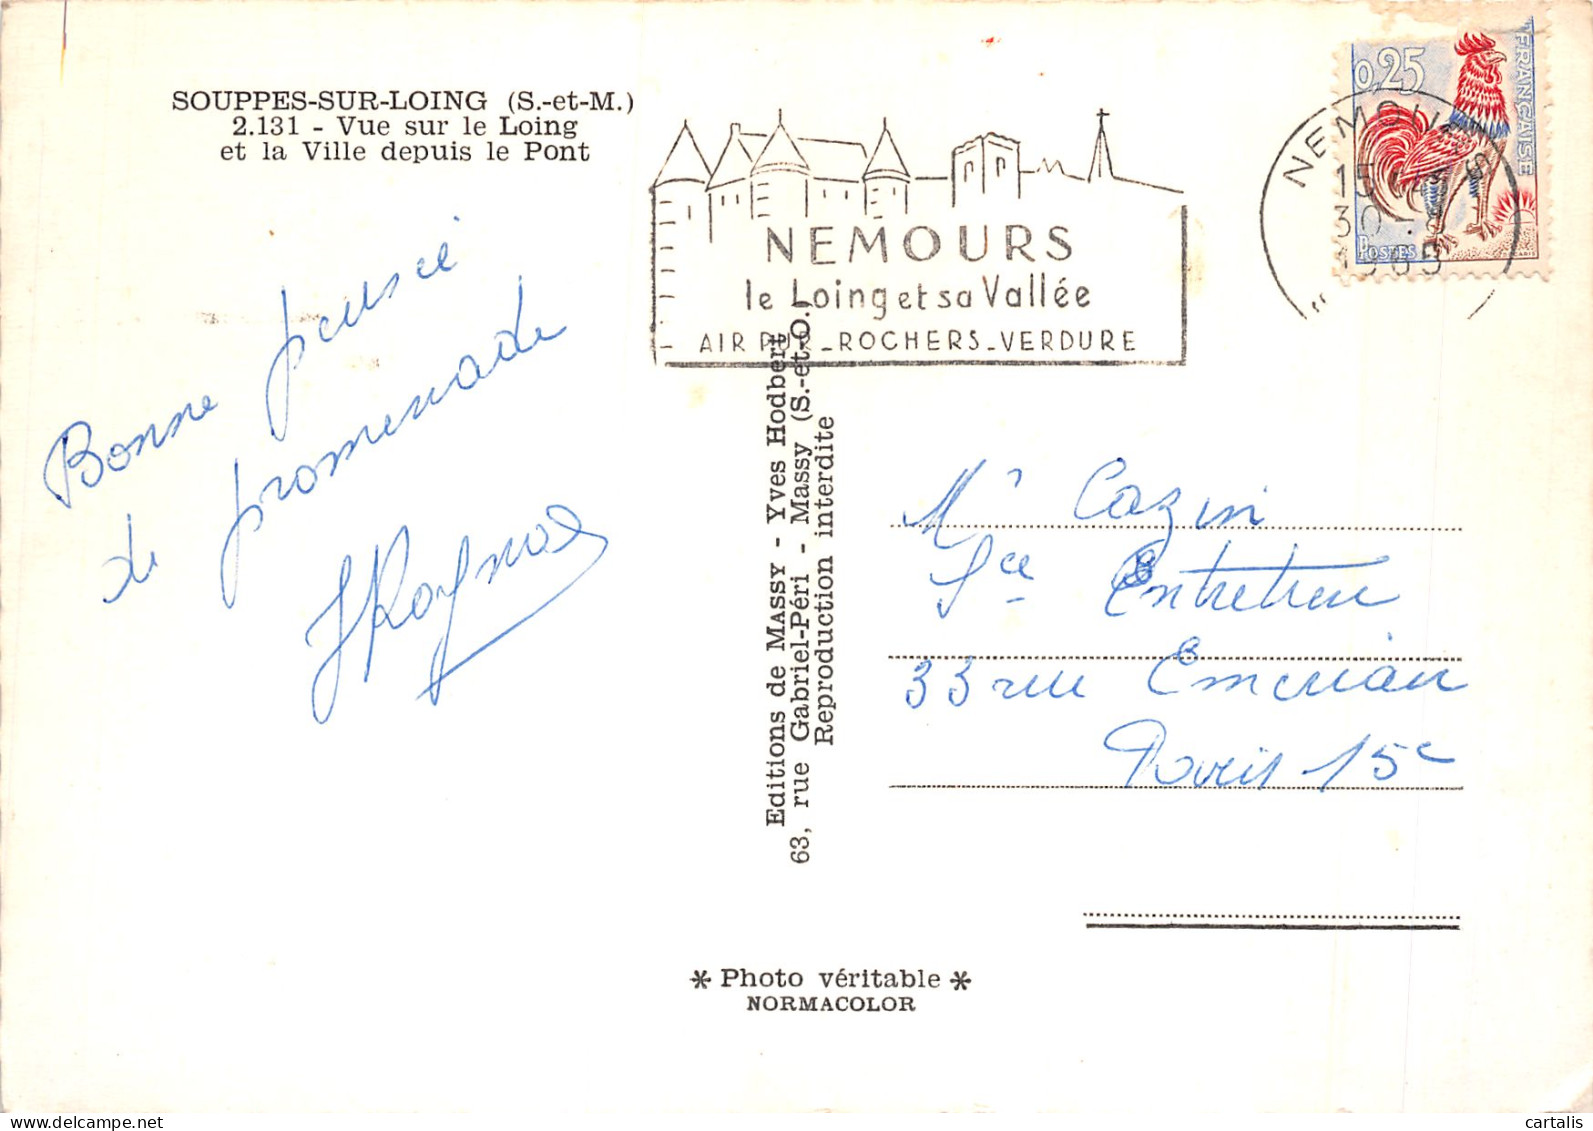 SOUPPES-SUR-LOING (S.-et-M.)
2.131 - Vue sur le Loing
et la Ville depuis le Pont
NEMOURS
le Loing et sa Vallée
AIR PUR_ROCHERS_VERDURE
0,25
FRANÇAISE
POSTES
NEMOURS
15
30 - 8
1965
Bonne pensée
de promenade
Editions de MASSY - Yves Hodbert
63, rue Gabriel-Péri - Massy (S.-et-O.)
Reproduction interdite
Mr Cazin
Sce Entretien
33 rue
Paris 15e
* Photo véritable *
NORMACOLOR
cartalis